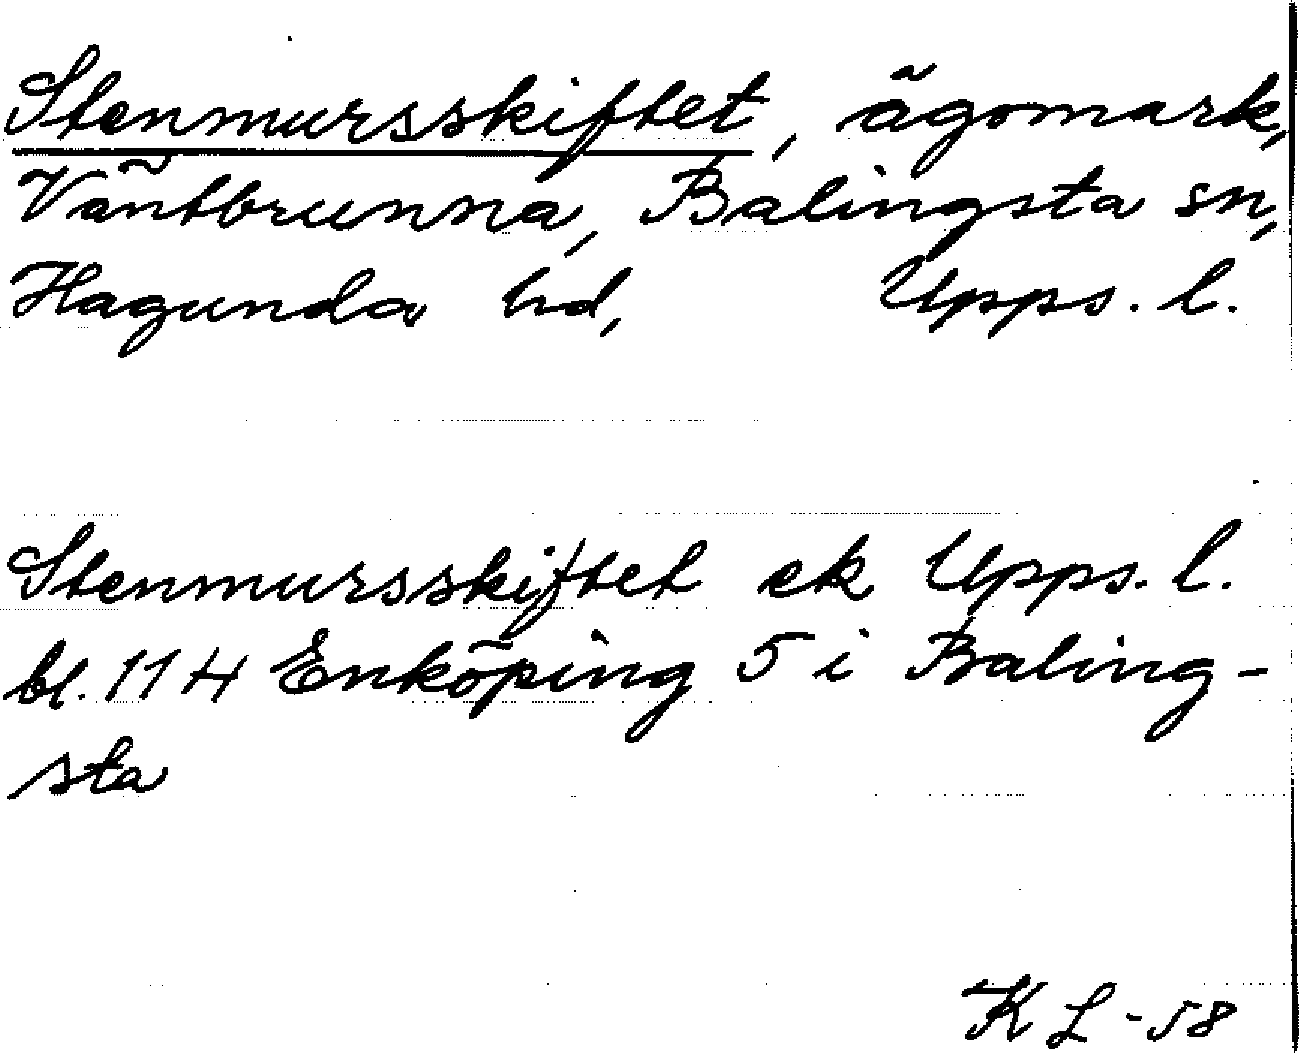 Stenmursskiftet, ägomark,
Väntbrunna, Balingsta sn,
Hagunda hd, Upps. l.
Stenmursskiftet ek Upps. l.
bl. 114 Enköping 5 i Baling-
sta
KL-58